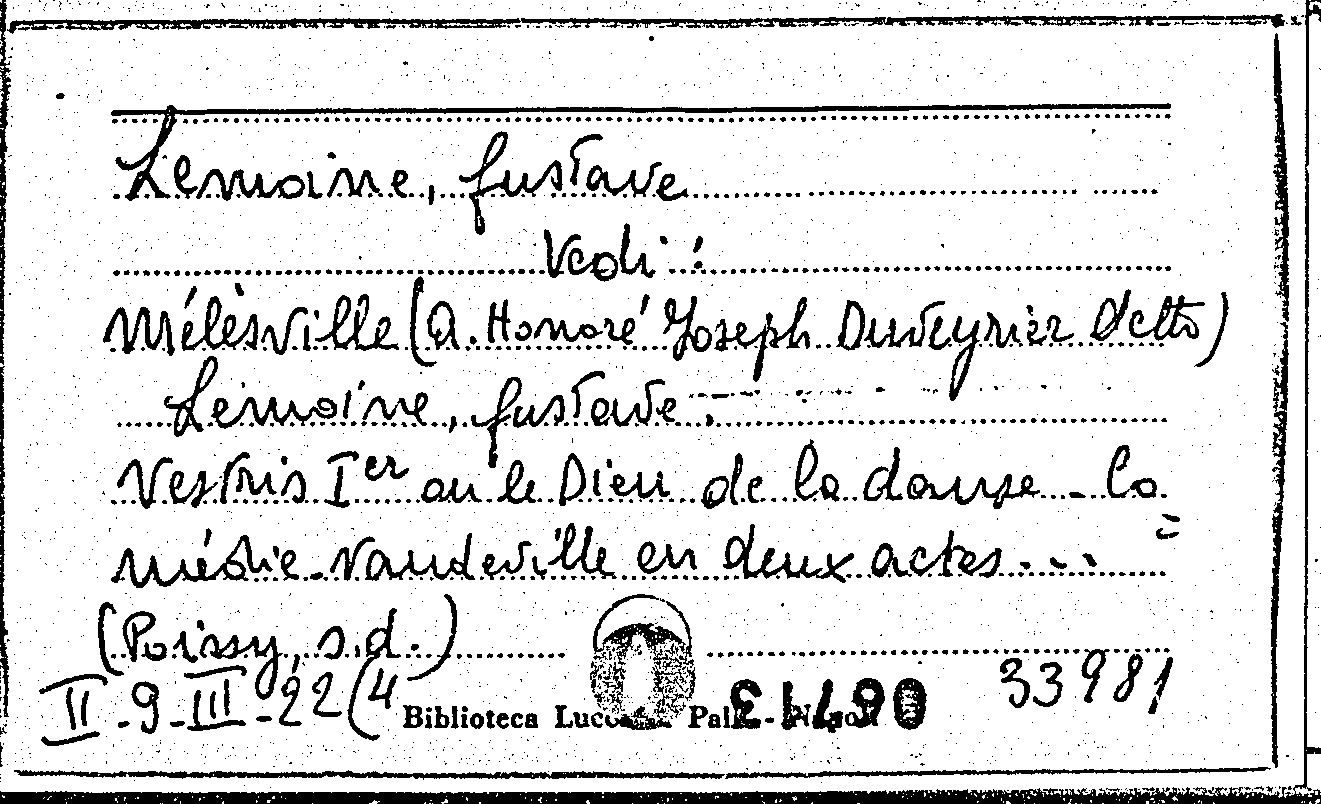 Lemoine, Gustave
Vedi:
Mélèsville (A. Honoré Joseph Duveyrier detto)
Lemoine, Gustave.
Vestris Ier ou le Dieu de la danse - Co
=
médie-vaudeville en deux actes...
(Poissy, s.d.)
II-9-III-22(4
33981
Biblioteca - Napoli